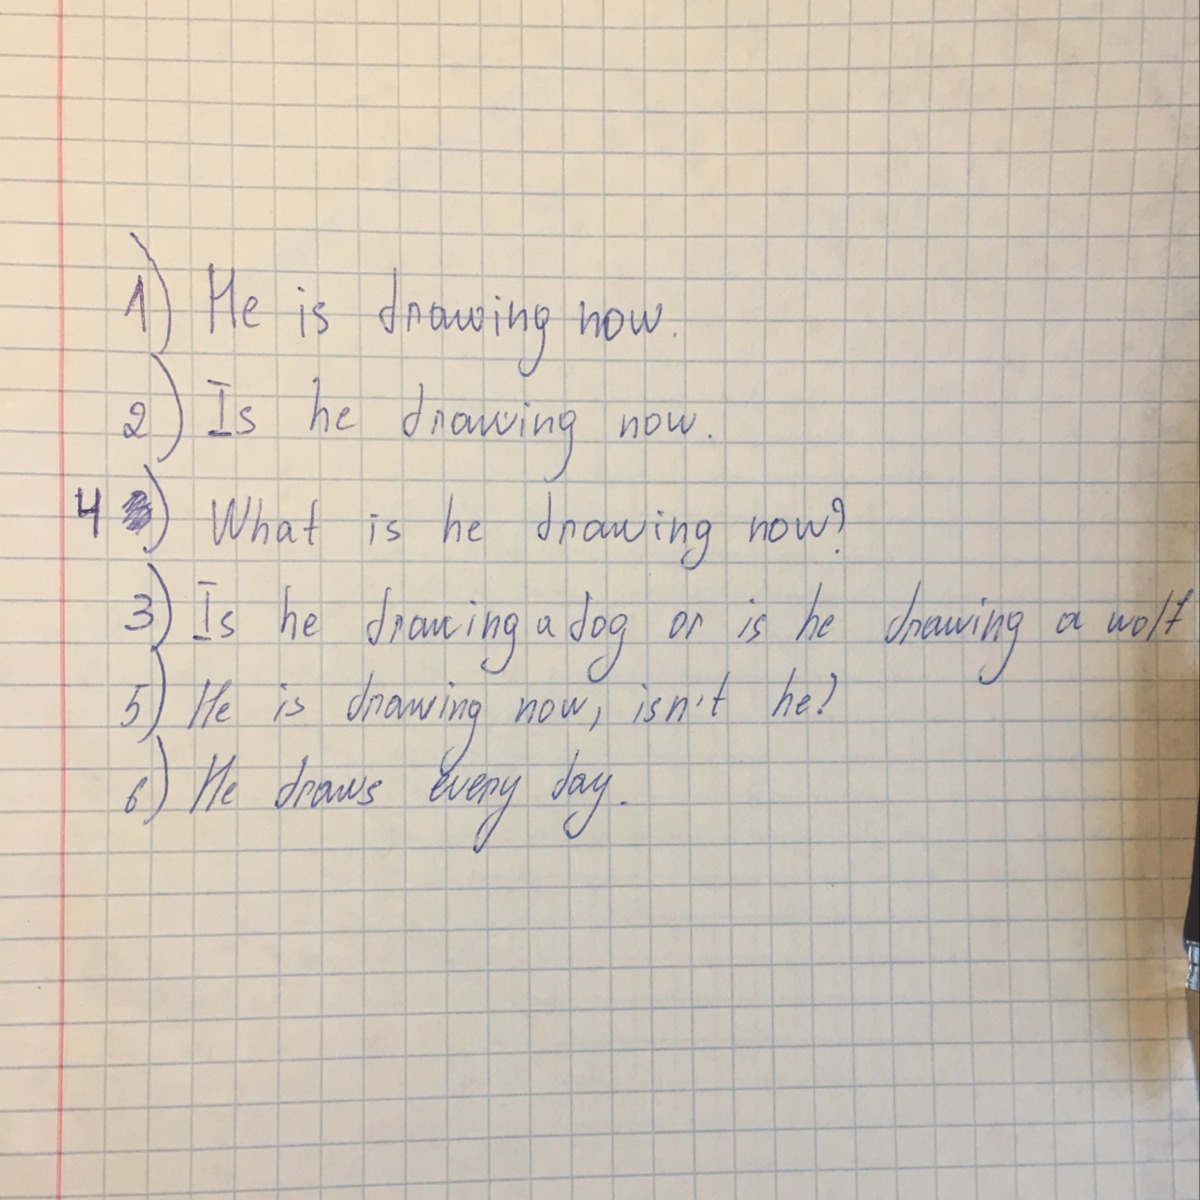 1) He is drawing now.
2) Is he drawing now.
4) What is he drawing now?
3) Is he drawing a dog or is he drawing a wolf
5) He is drawing now, isn't he?
6) He draws every day.